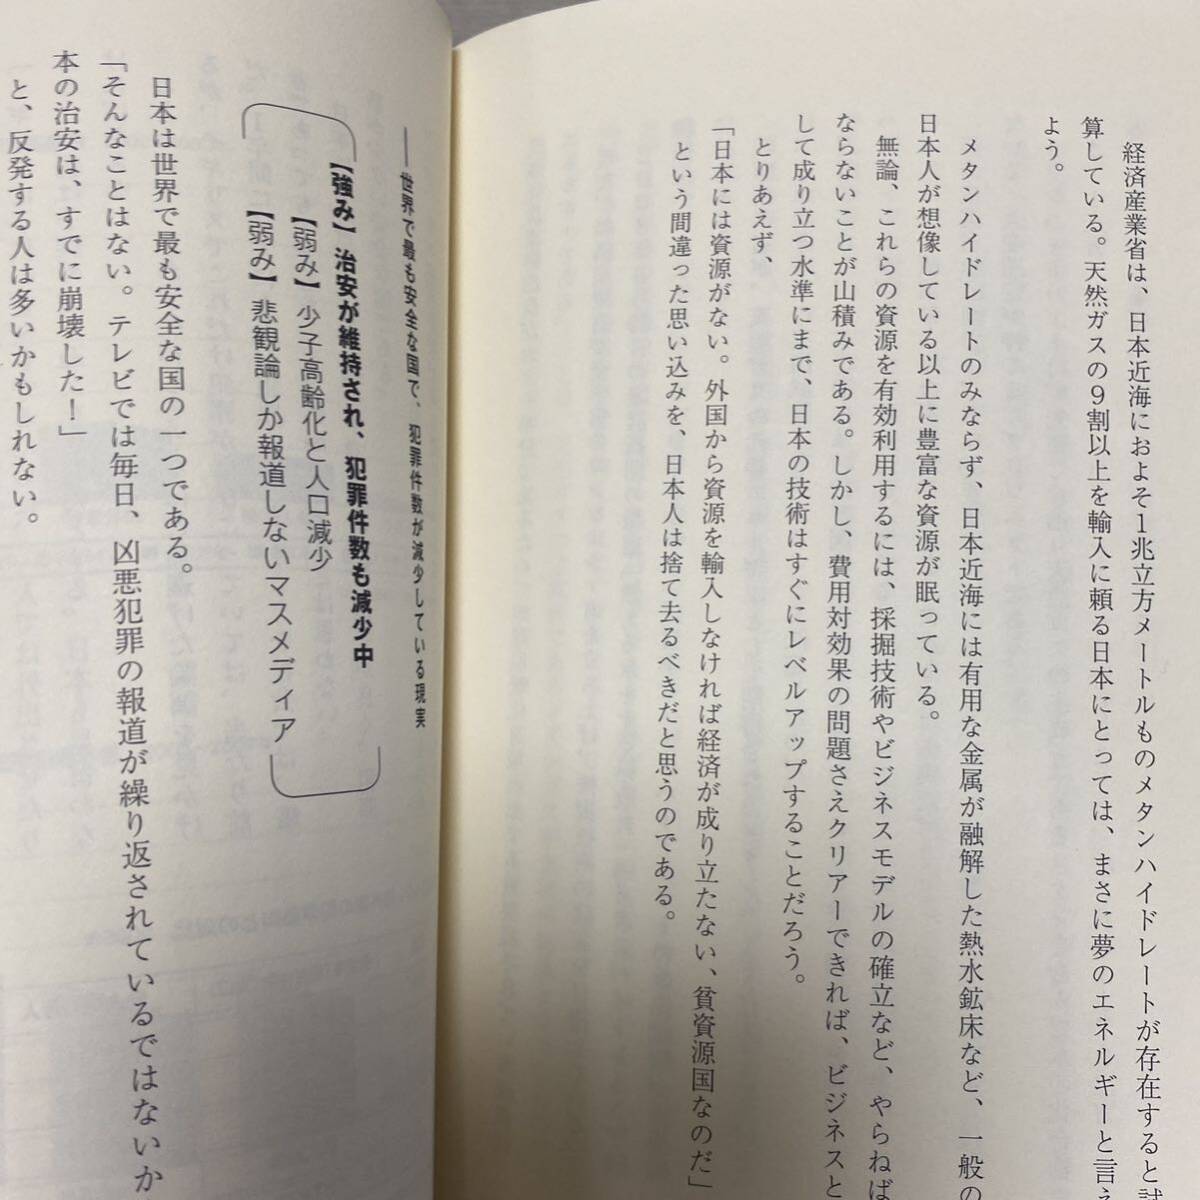 経済産業省は、日本近海におよそ1兆立方メートルものメタンハイドレートが存在すると試
算している。天然ガスの9割以上を輸入に頼る日本にとっては、まさに夢のエネルギーと言え
よう。
メタンハイドレートのみならず、日本近海には有用な金属が融解した熱水鉱床など、一般の
日本人が想像している以上に豊富な資源が眠っている。
無論、これらの資源を有効利用するには、採掘技術やビジネスモデルの確立など、やらねば
ならないことが山積みである。しかし、費用対効果の問題さえクリアーできれば、ビジネスと
して成り立つ水準にまで、日本の技術はすぐにレベルアップすることだろう。
とりあえず、
「日本には資源がない。外国から資源を輸入しなければ経済が成り立たない、貧資源国なのだ」
という間違った思い込みを、日本人は捨て去るべきだと思うのである。
――世界で最も安全な国で、犯罪件数が減少している現実
【強み】治安が維持され、犯罪件数も減少中
【弱み】少子高齢化と人口減少
【弱み】悲観論しか報道しないマスメディア
日本は世界で最も安全な国の一つである。
「そんなことはない。テレビでは毎日、凶悪犯罪の報道が繰り返されているではないか
本の治安は、すでに崩壊した！」
と、反発する人は多いかもしれない。